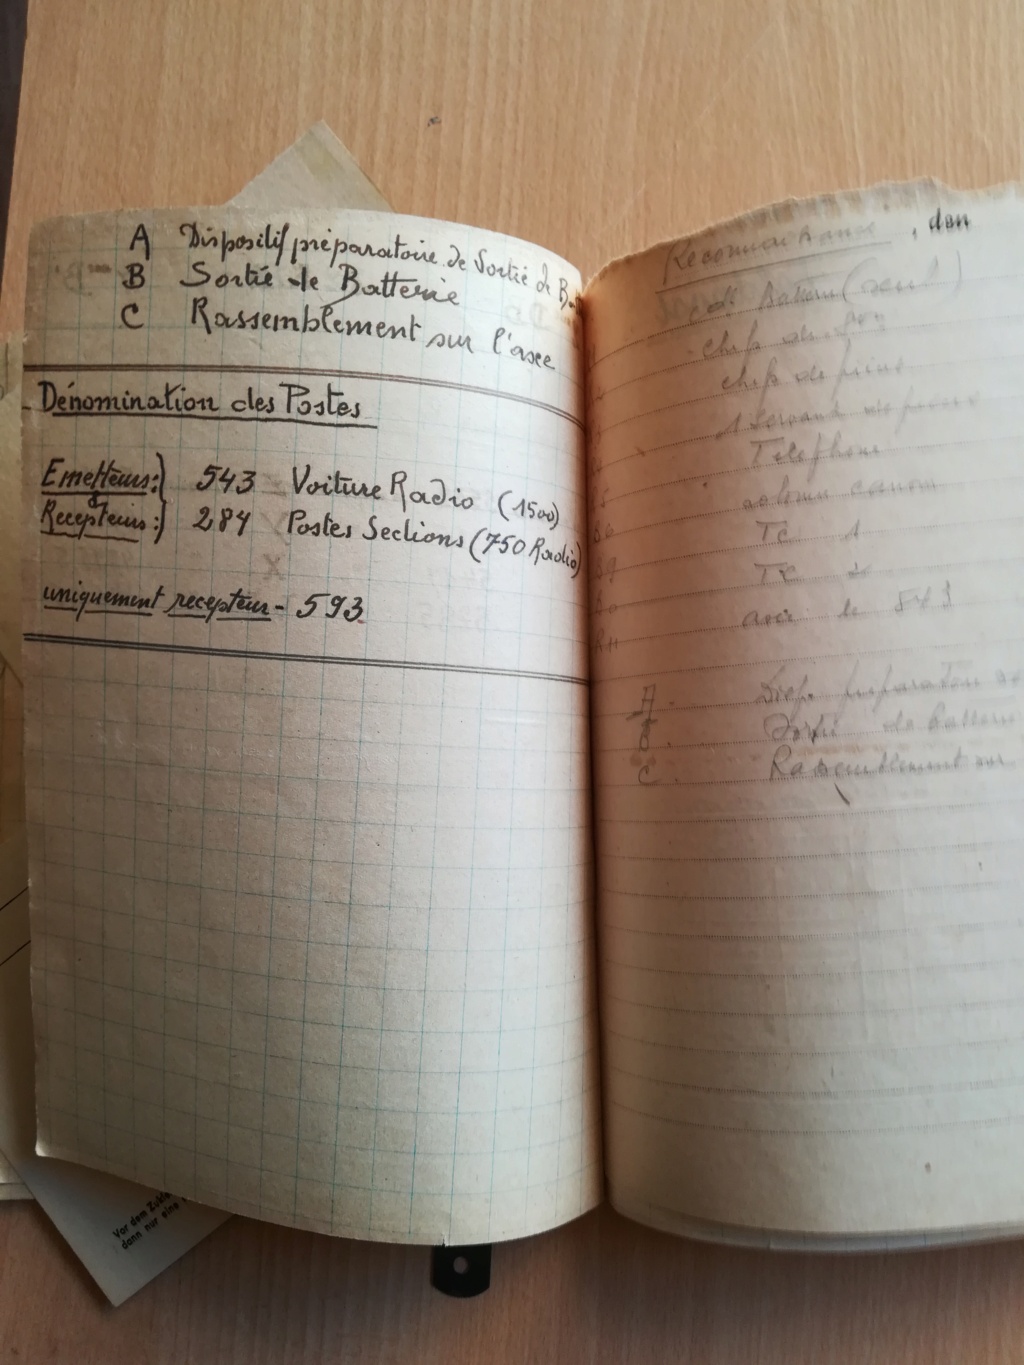 A Dispositif préparatoire de Sortie de
B Sortie de Batterie
C Rassemblement sur l'axe
Dénomination des Postes
Emetteurs:) 543 Voiture Radio (1500)
&
Recepteurs:) 284 Postes Sections (750 Radio)
uniquement recepteur - 593
Reconnaissance
chefs de
chefs de pièces
1 Servant de pièces
Telephone
colonne canon
TC 1
TC 2
avec le 543
A Disp. preparatoire
B Sortie de batterie
C Rassemblement sur
Vor dem
dann nur eine